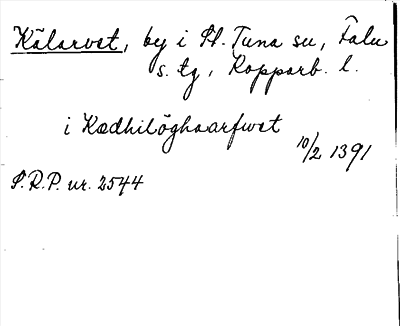 Kälarvet, by i St. Tuna su, Falu
s. tg, Kopparb. l.
i Kædhilöghaarfwet
10/2 1391
S.R.P. nr. 2544